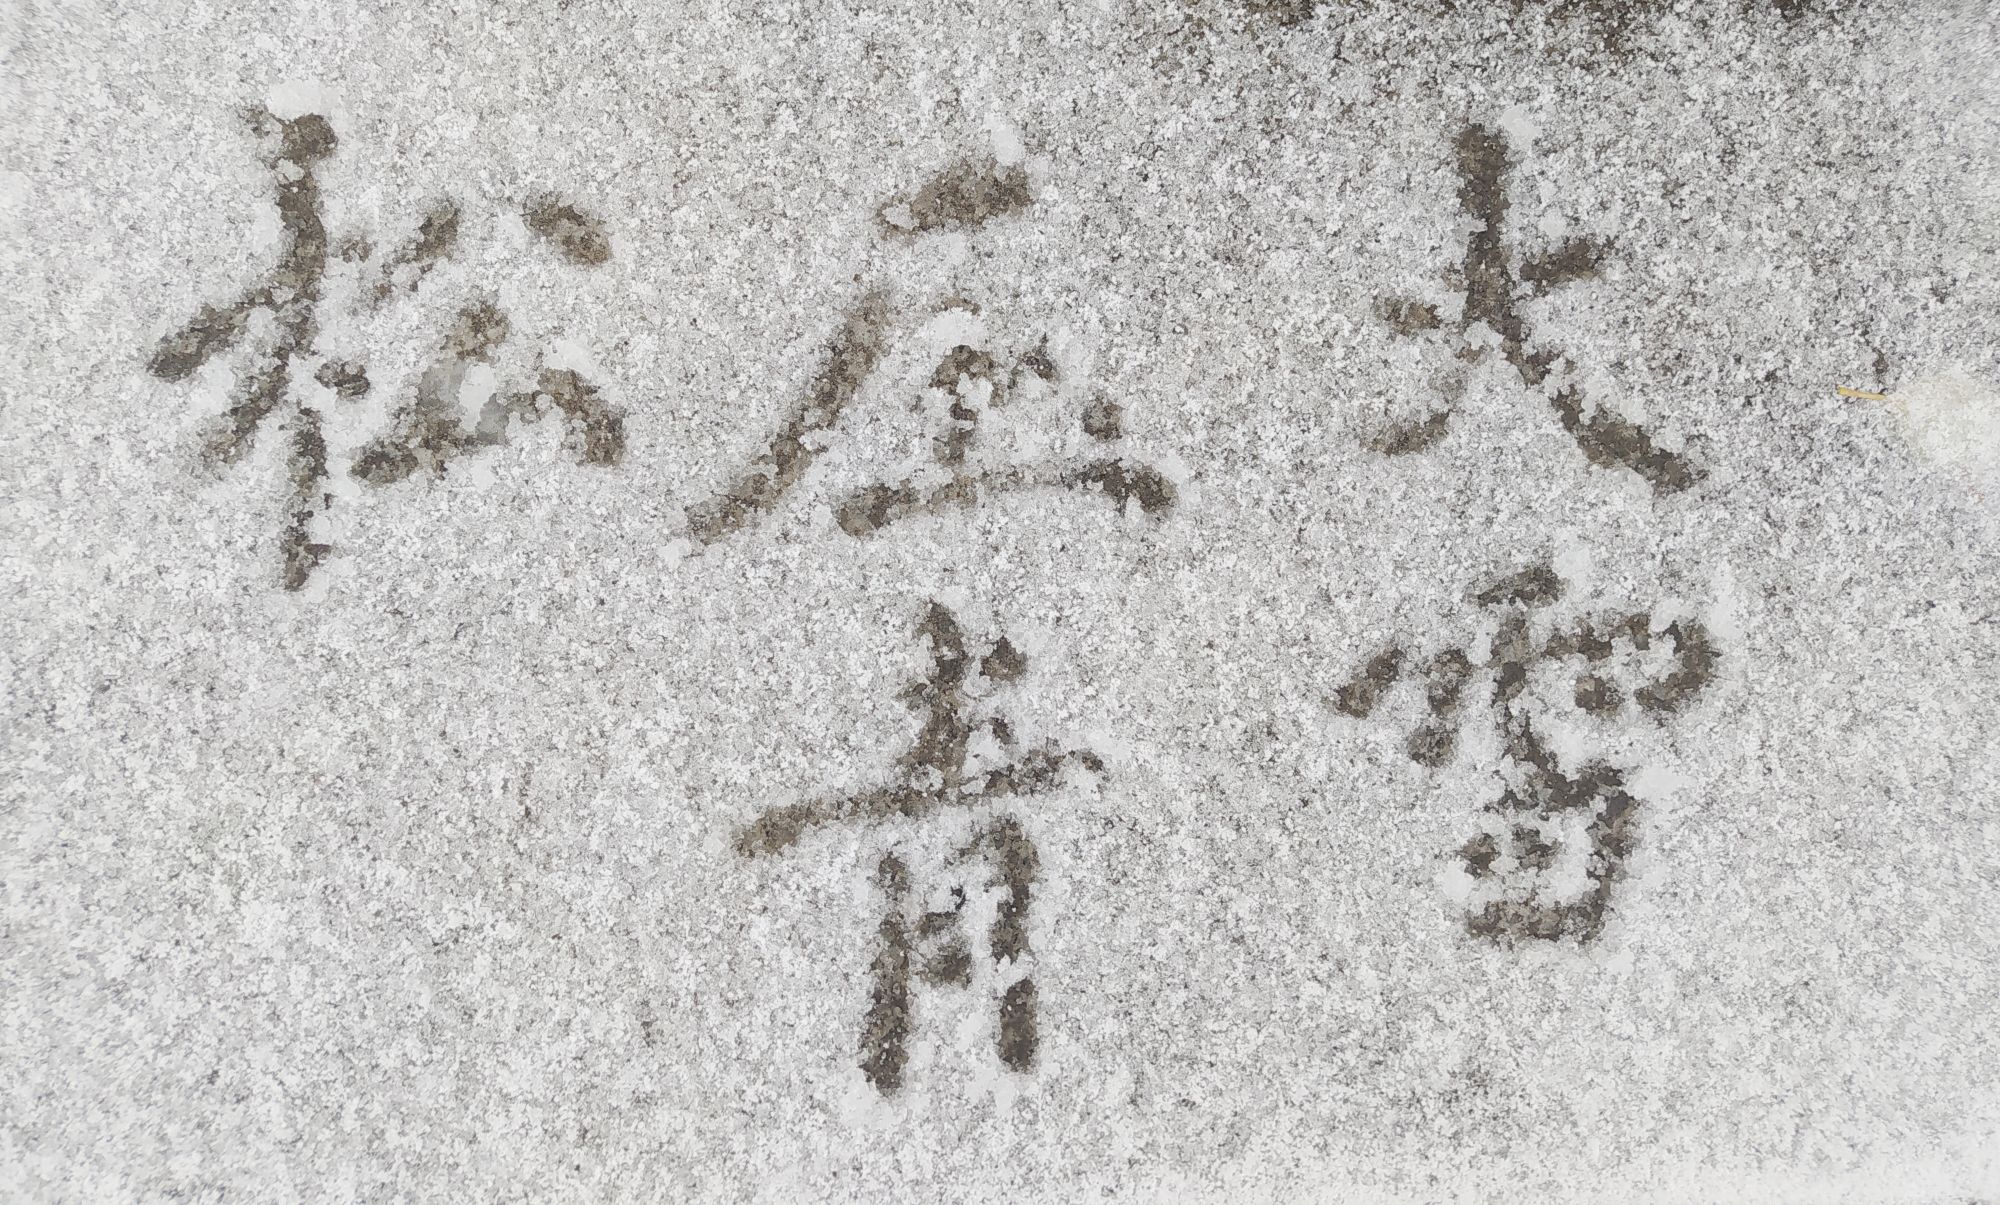 大雪
压青
松